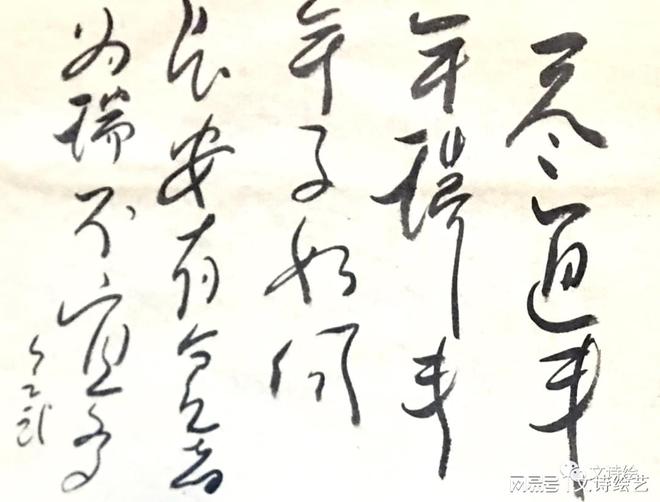 尽道丰
年瑞丰
年事如何
长安有贫者
为瑞不宜多
文诗绘
网易号 | 文诗绘艺